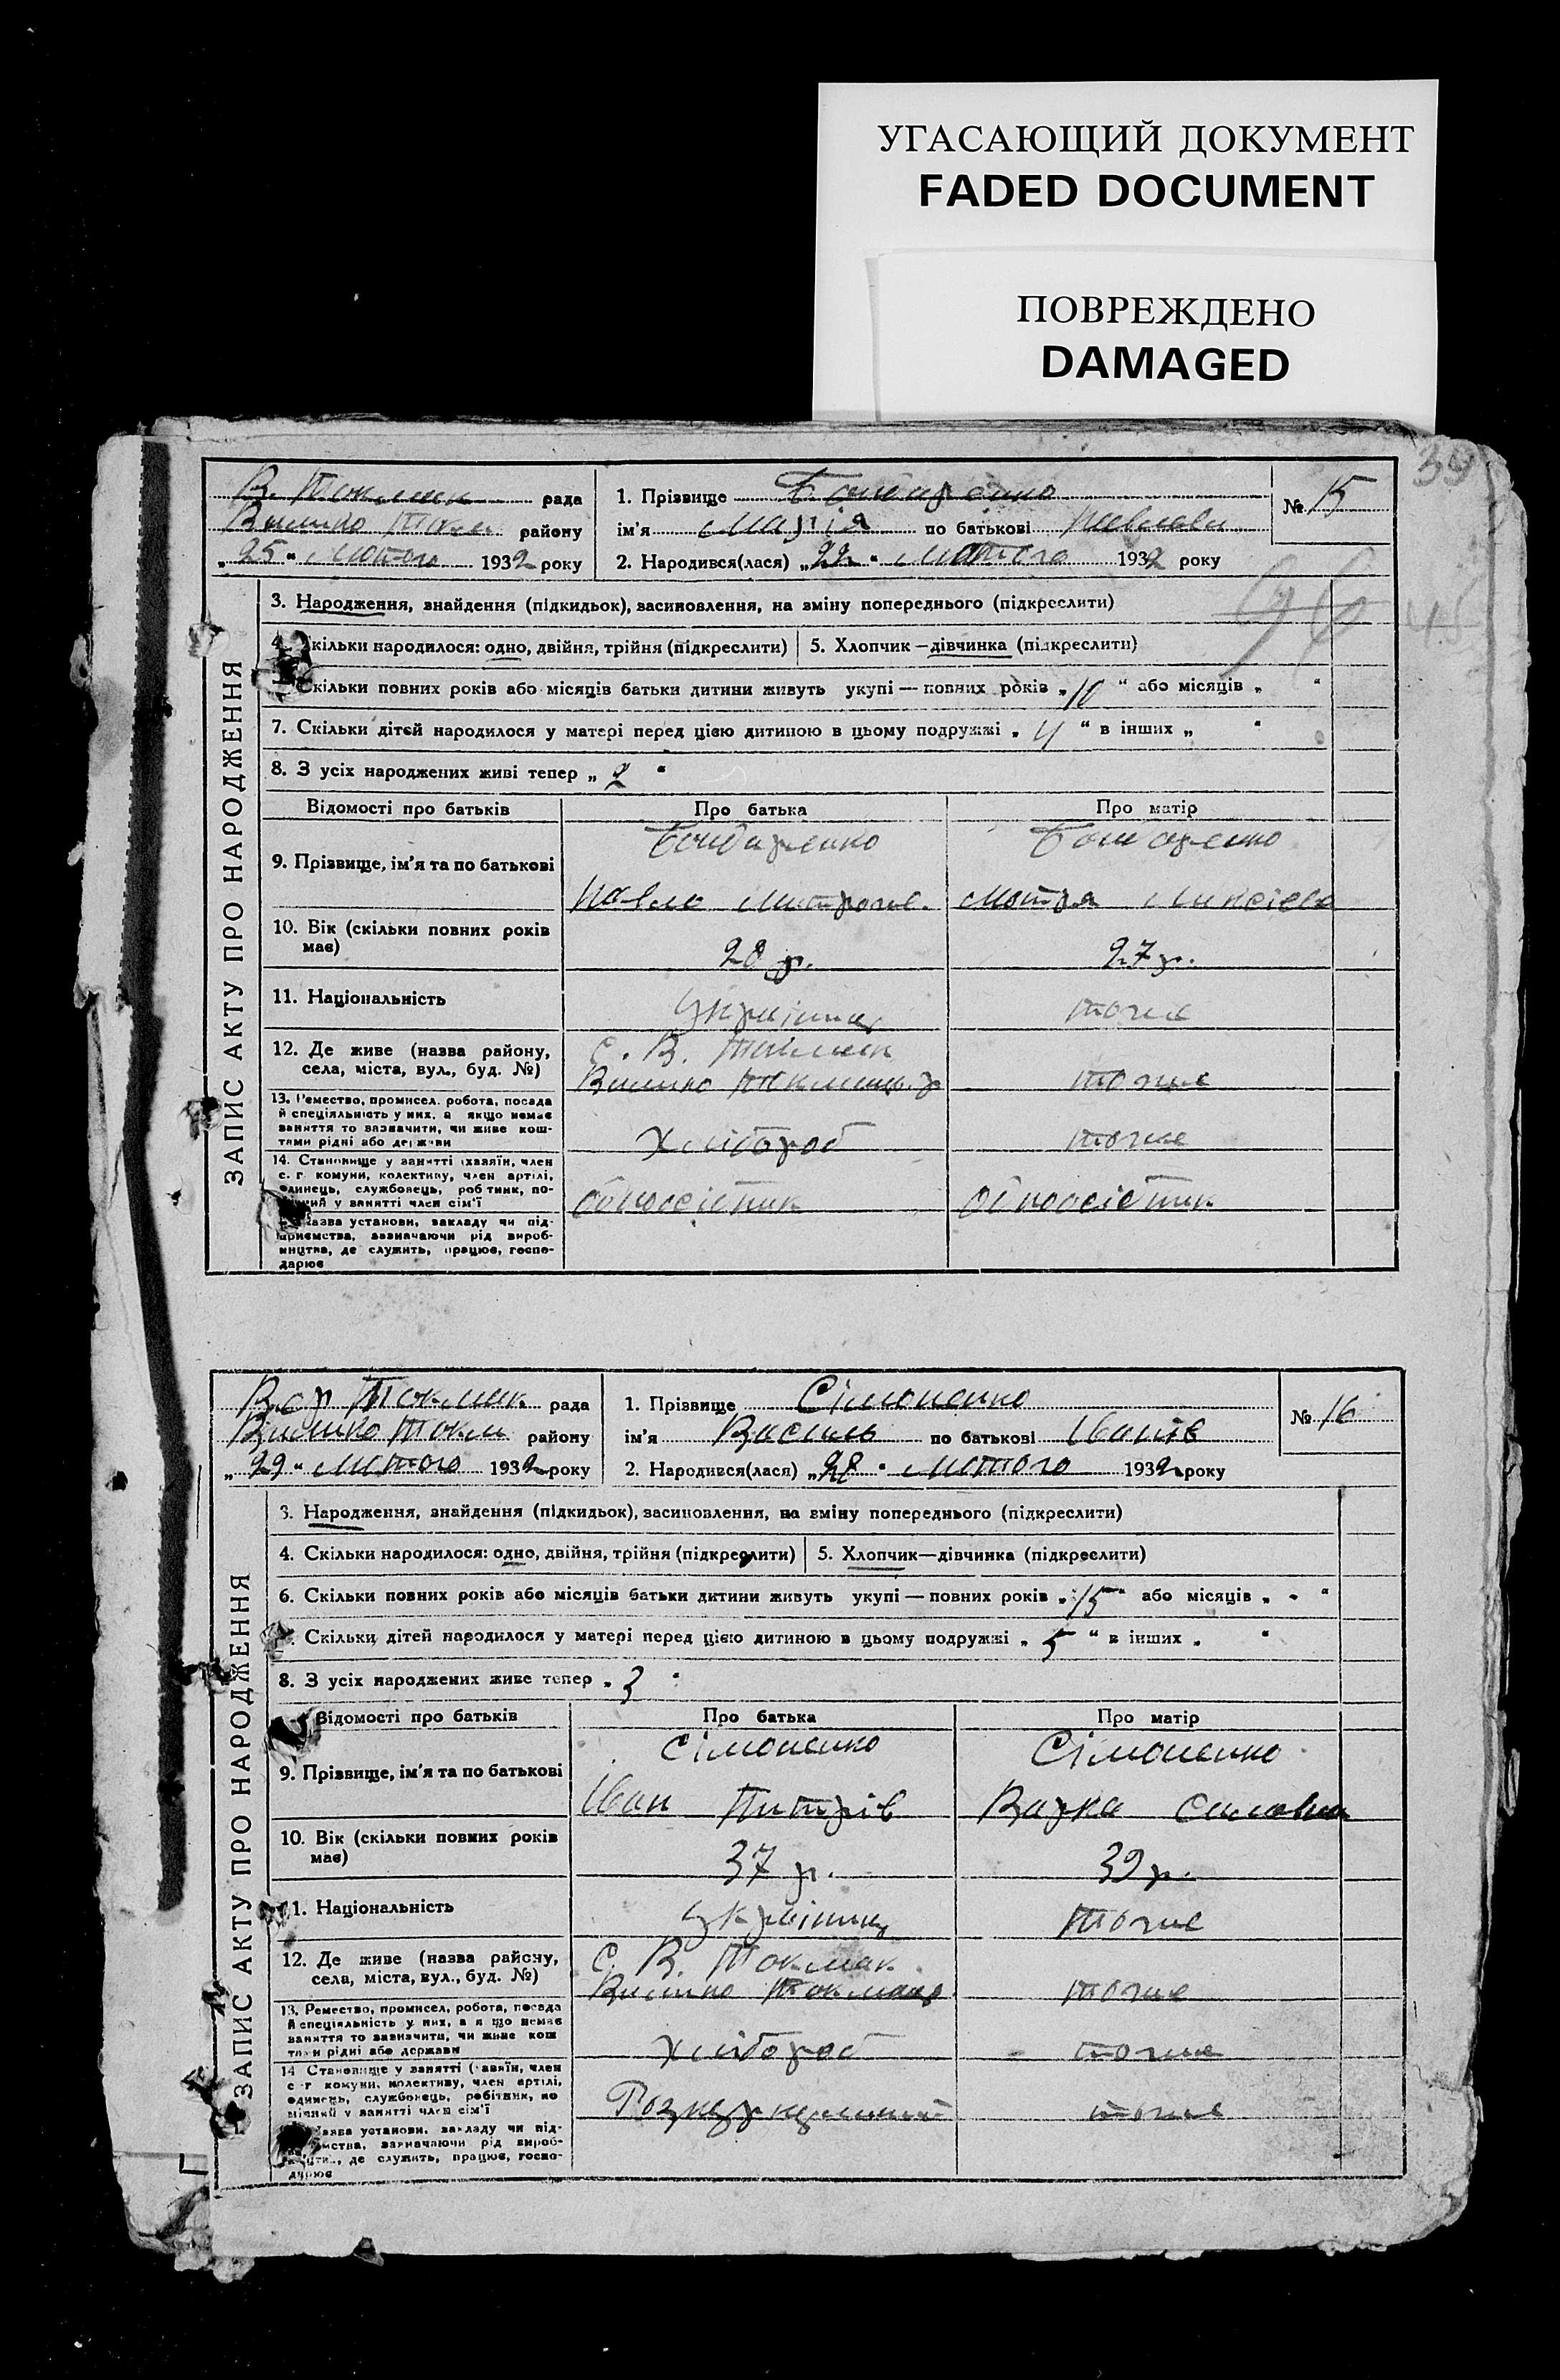 УГАСАЮЩИЙ ДОКУМЕНТ
FADED DOCUMENT
ПОВРЕЖДЕНО
DAMAGED
39
В. Токмак рада
Велико Токм району
„25“ лютого 1932 року
1. Прізвище Бондаренко
ім'я Марія по батькові Павлова
2. Народився(лася) „22“ лютого 1932 року
№ 15
ЗАПИС АКТУ ПРО НАРОДЖЕННЯ
3. Народження, знайдення (підкидьок), засиновлення, на зміну попереднього (підкреслити)
4. Скільки народилося: одно, двійня, трійня (підкреслити) 5. Хлопчик—дівчинка (підкреслити)
Скільки повних років або місяців батьки дитини живуть укупі — повних років „10“ або місяців „ “
7. Скільки дітей народилося у матері перед цією дитиною в цьому подружжі „4“ в інших „ “
8. З усіх народжених живі тепер „2“
Відомості про батьків Про батька Про матір
9. Прізвище, ім'я та по батькові
Бондаренко Бондаренко
Павло Митроф. Мотря
10. Вік (скільки повних років має)
28 р. 27 р.
11. Національність
українец тоже
12. Де живе (назва району, села, міста, вул., буд. №)
С. В. Токмак
Велико Токмацьк. р тоже
13. Ремество, промисел, робота, посада
й спеціяльність у них, а якщо немає
заняття то зазначити, чи живе кош-
тами рідні або держави
Хлібороб тоже
14. Становище у занятті (хазяїн, член
с. г. комуни, колективу, член артілі,
одинець, службовець, робітник, по-
мічний у занятті член сім'ї
одноосібник одноосібник
назва установи, закладу чи під-
приємства, зазначаючи рід вироб-
ництва, де служить, працює, госпо-
дарює
Токмак рада
Велико Токм району
„29“ лютого 1932 року
1. Прізвище Сімоненко
ім'я Василь по батькові Іванів
2. Народився(лася) „28“ лютого 1932 року
№ 16
ЗАПИС АКТУ ПРО НАРОДЖЕННЯ
3. Народження, знайдення (підкидьок), засиновлення, на зміну попереднього (підкреслити)
4. Скільки народилося: одно, двійня, трійня (підкреслити) 5. Хлопчик—дівчинка (підкреслити)
6. Скільки повних років або місяців батьки дитини живуть укупі — повних років „15“ або місяців „ - “
Скільки дітей народилося у матері перед цією дитиною в цьому подружжі „5“ в інших „ “
8. З усіх народжених живе тепер „3“
Відомості про батьків Про батька Про матір
9. Прізвище, ім'я та по батькові
Сімоненко Сімоненко
Іван Питрів Варка Силовна
10. Вік (скільки повних років має)
37 р. 39 р.
11. Національність
українец тоже
12. Де живе (назва району, села, міста, вул., буд. №)
С. В. Токмак
Велико Токмацьк тоже
13. Ремество, промисел, робота, посада
й спеціяльність у них, а якщо немає
заняття то зазначити, чи живе кош
тами рідні або держави
хлібороб тоже
14 Становище у занятті (хазяїн, член
с.-г. комуни, колективу, член артілі,
одинець, службовець, робітник, по
мічний у занятті член сім'ї
Розкуркулений тоже
назва установи, закладу чи під-
приємства, зазначаючи рід вироб-
ництва, де служить, працює, госпо-
дарює